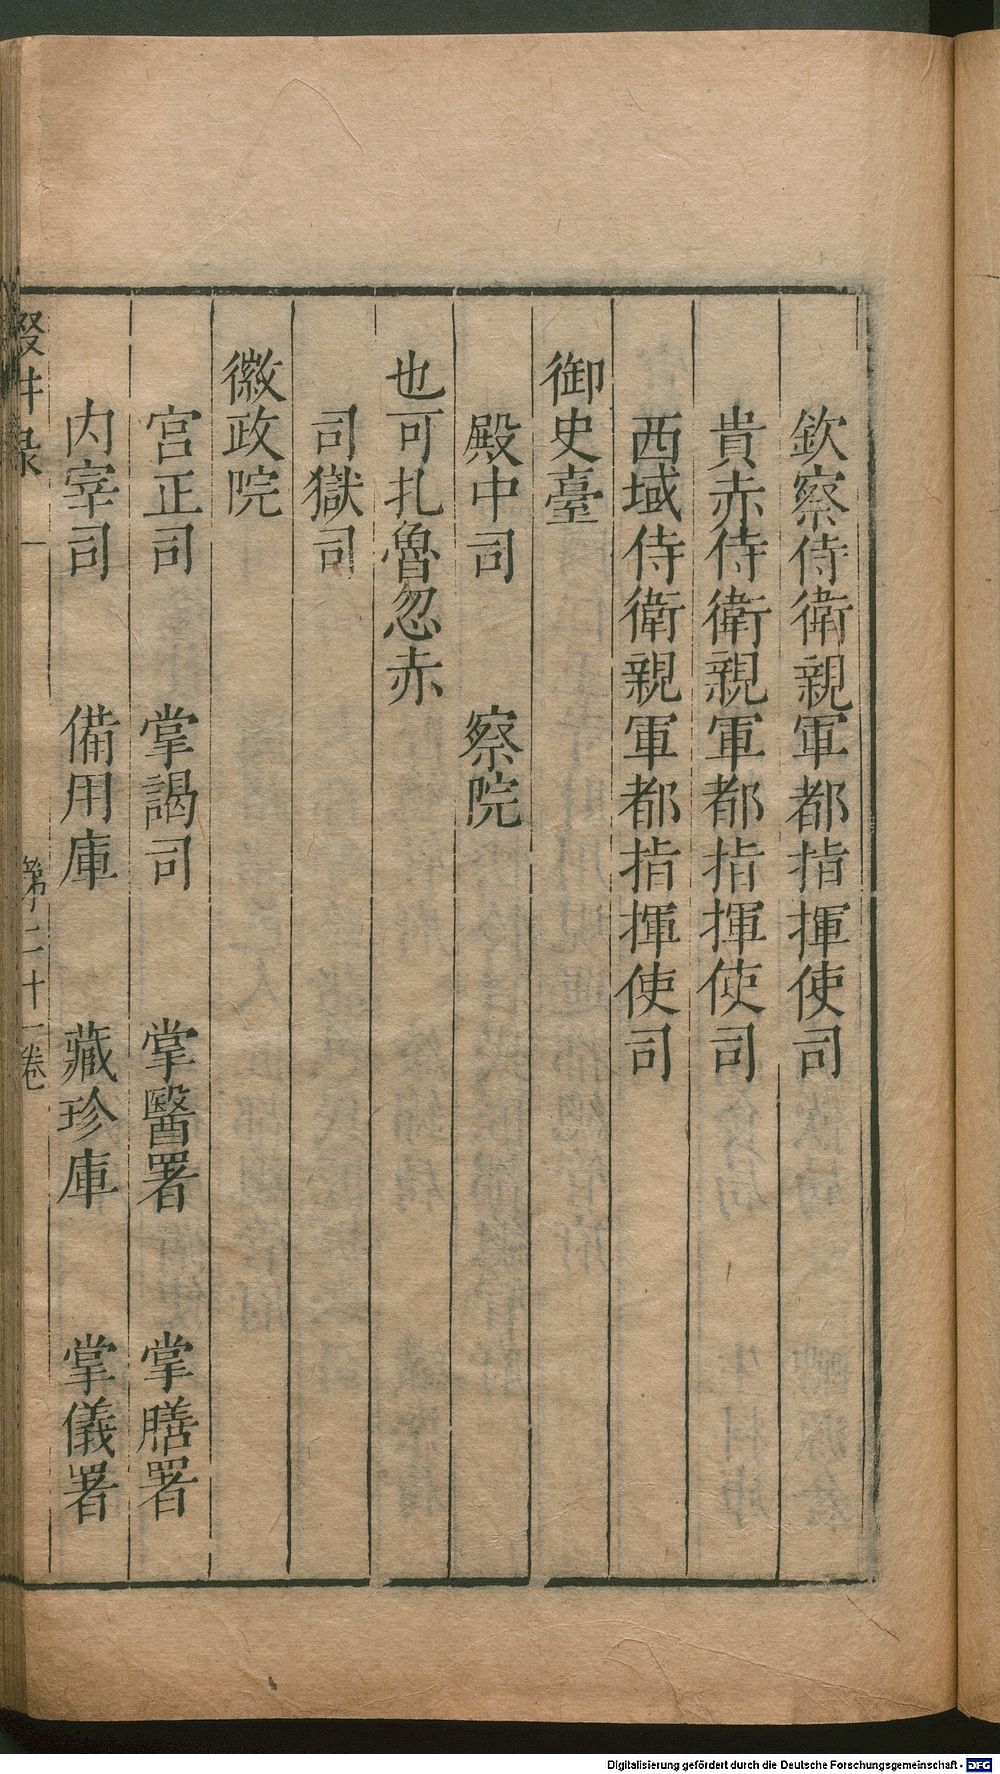 欽察侍衛親軍都指揮使司
貴赤侍衛親軍都指揮使司
西域侍衛親軍都指揮使司
御史臺
殿中司　察院
也可扎魯忽赤
司獄司
徽政院
宮正司　掌謁司　掌醫署　掌膳署
内宰司　備用庫　藏珍庫　掌儀署
輟畊录　第二十一卷
Digitalisierung gefördert durch die Deutsche Forschungsgemeinschaft - DFG